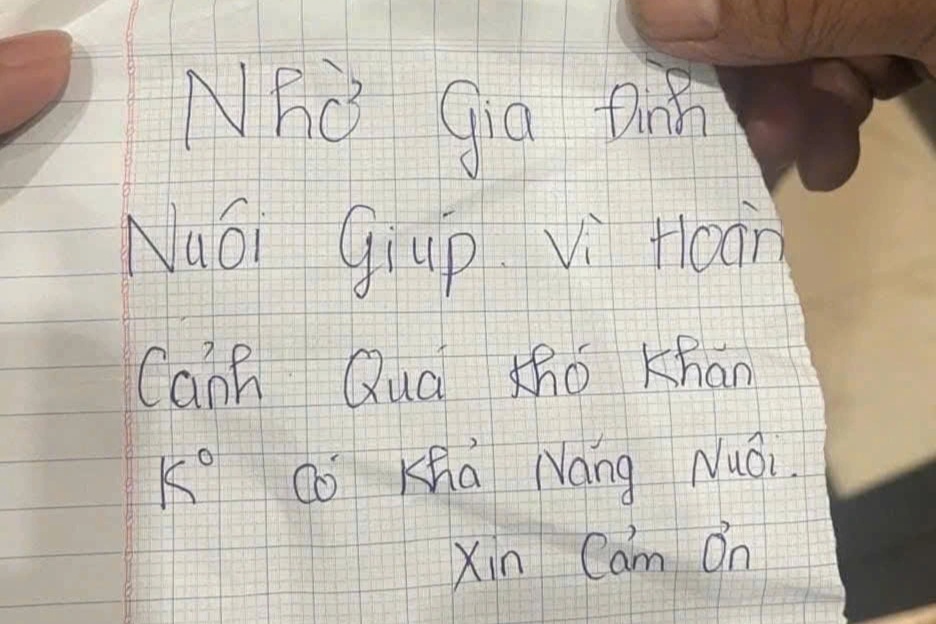 Nhờ Gia Đình
Nuôi Giúp. Vì Hoàn
Cảnh Quá Khó Khăn
K° Có Khả Năng Nuôi.
Xin Cảm Ơn